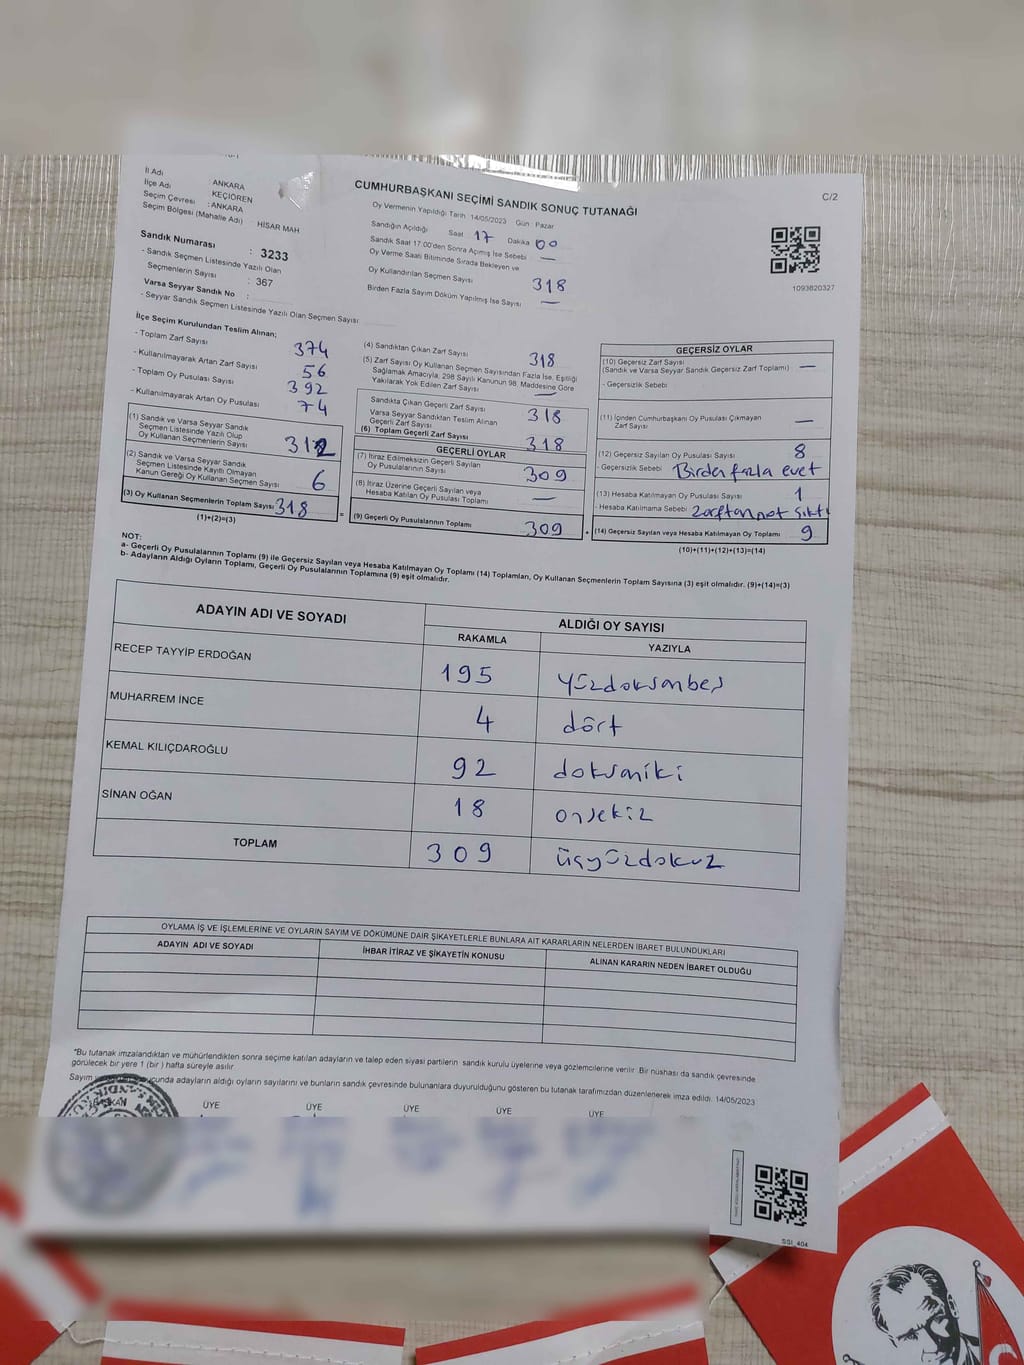 İl Adı : ANKARA
İlçe Adı : KEÇİÖREN
Seçim Çevresi : ANKARA
Seçim Bölgesi (Mahalle Adı) HİSAR MAH
Sandık Numarası : 3233
- Sandık Seçmen Listesinde Yazılı Olan
Seçmenlerin Sayısı : 367
Varsa Seyyar Sandık No :
- Seyyar Sandık Seçmen Listesinde Yazılı Olan Seçmen Sayısı
CUMHURBAŞKANI SEÇİMİ SANDIK SONUÇ TUTANAĞI
C/2
Oy Vermenin Yapıldığı Tarih 14/05/2023 Gün : Pazar
Sandığın Açıldığı Saat 17 Dakika 00
Sandık Saat 17.00'den Sonra Açılmış İse Sebebi —
Oy Verme Saati Bitiminde Sırada Bekleyen ve
Oy Kullandırılan Seçmen Sayısı 318
Birden Fazla Sayım Döküm Yapılmış İse Sayısı —
1093820327
İlçe Seçim Kurulundan Teslim Alınan;
- Toplam Zarf Sayısı 374
- Kullanılmayarak Artan Zarf Sayısı 56
- Toplam Oy Pusulası Sayısı 392
- Kullanılmayarak Artan Oy Pusulası 74
(1) Sandık ve Varsa Seyyar Sandık
Seçmen Listesinde Yazılı Olup
Oy Kullanan Seçmenlerin Sayısı 312
(2) Sandık ve Varsa Seyyar Sandık
Seçmen Listesinde Kayıtlı Olmayan
Kanun Gereği Oy Kullanan Seçmen Sayısı 6
(3) Oy Kullanan Seçmenlerin Toplam Sayısı 318
(1)+(2)=(3)
=
(4) Sandıktan Çıkan Zarf Sayısı 318
(5) Zarf Sayısı Oy Kullanan Seçmen Sayısından Fazla İse, Eşitliği
Sağlamak Amacıyla, 298 Sayılı Kanunun 98. Maddesine Göre
Yakılarak Yok Edilen Zarf Sayısı —
Sandıkta Çıkan Geçerli Zarf Sayısı 318
Varsa Seyyar Sandıktan Teslim Alınan
Geçerli Zarf Sayısı
(6) Toplam Geçerli Zarf Sayısı 318
GEÇERLİ OYLAR
(7) İtiraz Edilmeksizin Geçerli Sayılan
Oy Pusulalarının Sayısı 309
(8) İtiraz Üzerine Geçerli Sayılan veya
Hesaba Katılan Oy Pusulası Toplamı —
(9) Geçerli Oy Pusulalarının Toplamı 309
+
GEÇERSİZ OYLAR
(10) Geçersiz Zarf Sayısı
(Sandık ve Varsa Seyyar Sandık Geçersiz Zarf Toplamı) —
- Geçersizlik Sebebi
(11) İçinden Cumhurbaşkanı Oy Pusulası Çıkmayan
Zarf Sayısı —
(12) Geçersiz Sayılan Oy Pusulası Sayısı 8
- Geçersizlik Sebebi Birden fazla evet
(13) Hesaba Katılmayan Oy Pusulası Sayısı 1
- Hesaba Katılmama Sebebi Zarftan not çıktı
(14) Geçersiz Sayılan veya Hesaba Katılmayan Oy Toplamı 9
(10)+(11)+(12)+(13)=(14)
NOT:
a- Geçerli Oy Pusulalarının Toplamı (9) ile Geçersiz Sayılan veya Hesaba Katılmayan Oy Toplamı (14) Toplamları, Oy Kullanan Seçmenlerin Toplam Sayısına (3) eşit olmalıdır. (9)+(14)=(3)
b- Adayların Aldığı Oyların Toplamı, Geçerli Oy Pusulalarının Toplamına (9) eşit olmalıdır.
ADAYIN ADI VE SOYADI ALDIĞI OY SAYISI
RAKAMLA YAZIYLA
RECEP TAYYİP ERDOĞAN 195 yüzdoksanbeş
MUHARREM İNCE 4 dört
KEMAL KILIÇDAROĞLU 92 doksaniki
SİNAN OĞAN 18 onsekiz
TOPLAM 309 üçyüzdokuz
OYLAMA İŞ VE İŞLEMLERİNE VE OYLARIN SAYIM VE DÖKÜMÜNE DAİR ŞİKAYETLERLE BUNLARA AİT KARARLARIN NELERDEN İBARET BULUNDUKLARI
ADAYIN ADI VE SOYADI İHBAR İTİRAZ VE ŞİKAYETİN KONUSU ALINAN KARARIN NEDEN İBARET OLDUĞU
*Bu tutanak imzalandıktan ve mühürlendikten sonra seçime katılan adayların ve talep eden siyasi partilerin sandık kurulu üyelerine veya gözlemcilerine verilir. Bir nüshası da sandık çevresinde
görülecek bir yere 1 (bir ) hafta süreyle asılır.
Sayım ucunda adayların aldığı oyların sayılarını ve bunların sandık çevresinde bulunanlara duyurulduğunu gösteren bu tutanak tarafımızdan düzenlenerek imza edildi. 14/05/2023
BAŞKAN ÜYE ÜYE ÜYE ÜYE ÜYE
SGI_404